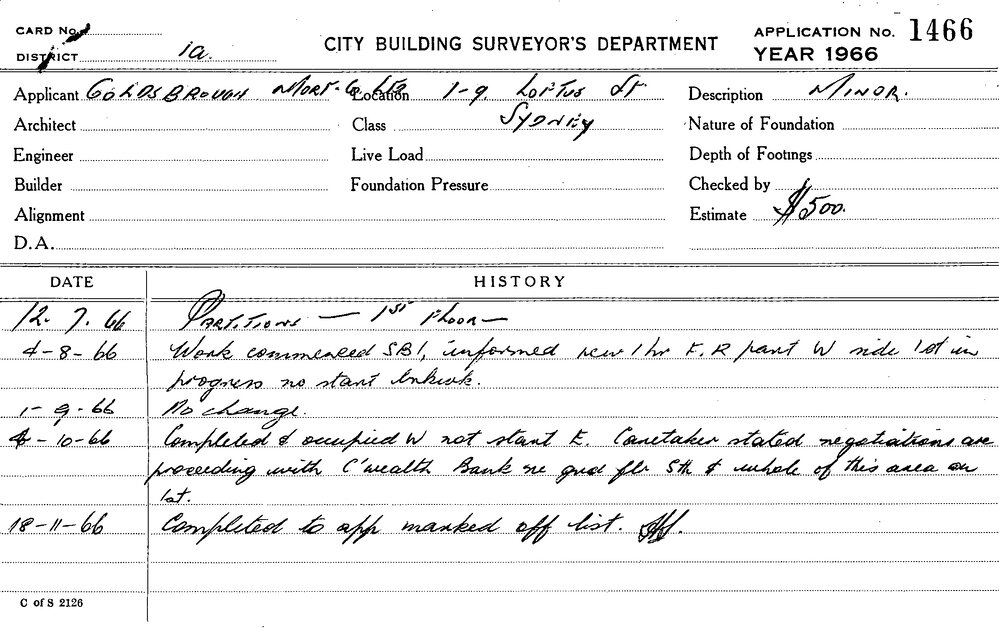 CARD No.
DISTRICT 1a.
CITY BUILDING SURVEYOR'S DEPARTMENT
APPLICATION No. 1466
YEAR 1966
Applicant GOLDSBROUGH MORT & Co LTD Location 1-9 LOFTUS ST Description MINOR.
Architect Class SYDNEY Nature of Foundation
Engineer Live Load Depth of Footings
Builder Foundation Pressure Checked by
Alignment Estimate $500.
D.A.
DATE HISTORY
12. 7. 66 PARTITIONS — 1ST FLOOR —
4-8-66 Work commenced SB1, informed new 1 hr F.R part W side 1st in
progress no start
1-9-66 No change.
6-10-66 Completed & occupied W not start E. Caretaker stated negotiations are
proceeding with C'wealth Bank re gnd flr Sth & whole of this area on
1st.
18-11-66 Completed to app marked off list.
C of S 2126